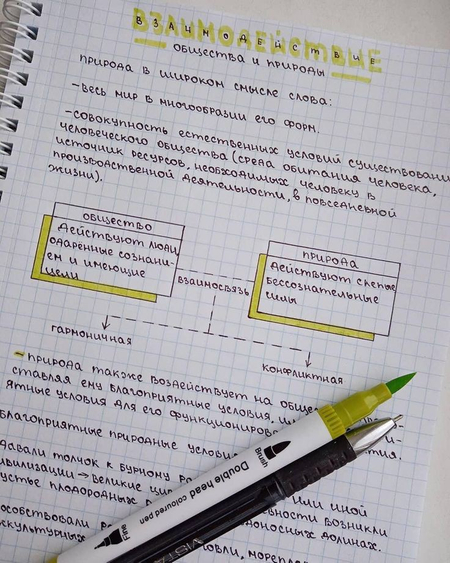 ВЗАИМОДЕЙСТВИЕ
ВЗАИМОДЕЙСТВИЕ
ОБЩЕСТВА И ПРИРОДЫ
ПРИРОДА В ШИРОКОМ СМЫСЛЕ СЛОВА:
-ВЕСЬ МИР В МНОГООБРАЗИИ ЕГО ФОРМ.
-СОВОКУПНОСТЬ ЕСТЕСТВЕННЫХ УСЛОВИЙ СУЩЕСТВОВАНИ
ЧЕЛОВЕЧЕСКОГО ОБЩЕСТВА (СРЕДА ОБИТАНИЯ ЧЕЛОВЕКА,
ИСТОЧНИК РЕСУРСОВ, НЕОБХОДИМЫХ ЧЕЛОВЕКУ В
ПРОИЗВОДСТВЕННОЙ ДЕЯТЕЛЬНОСТИ, В ПОВСЕДНЕВНОЙ
ЖИЗНИ).
ОБЩЕСТВО
ДЕЙСТВУЮТ ЛЮДИ,
ОДАРЁННЫЕ СОЗНАНИ-
ЕМ И ИМЕЮЩИЕ
ЦЕЛИ
ПРИРОДА
ДЕЙСТВУЮТ СЛЕПЫЕ
БЕССОЗНАТЕЛЬНЫЕ
СИЛЫ
ВЗАИМОСВЯЗЬ
ГАРМОНИЧНАЯ
КОНФЛИКТНАЯ
~ПРИРОДА ТАКЖЕ ВОЗДЕЙСТВУЕТ НА ОБЩЕ
СТАВЛЯЯ ЕМУ БЛАГОПРИЯТНЫЕ УСЛОВИЯ,
ЯТНЫЕ УСЛОВИЯ ДЛЯ ЕГО ФУНКЦИОНИРОВ
БЛАГОПРИЯТНЫЕ ПРИРОДНЫЕ УСЛОВИ
ДАВАЛИ ТОЛЧОК К БУРНОМУ РА ИЛИ ИНОЙ
ИВИЛИЗАЦИИ → ВЕЛИКИЕ ЦИВ ВНОСТИ ВОЗНИКЛИ
УСТЬЕ ПЛОДОРОДНЫХ ДОНОСНЫХ ДОЛИНАХ.
ОСОБСТВОВАЛИ РА
ОКУЛЬТУРНЫХ ОВЛИ, МОРЕПЛА
Brush
Double head coloured pen
Fine
VISTA